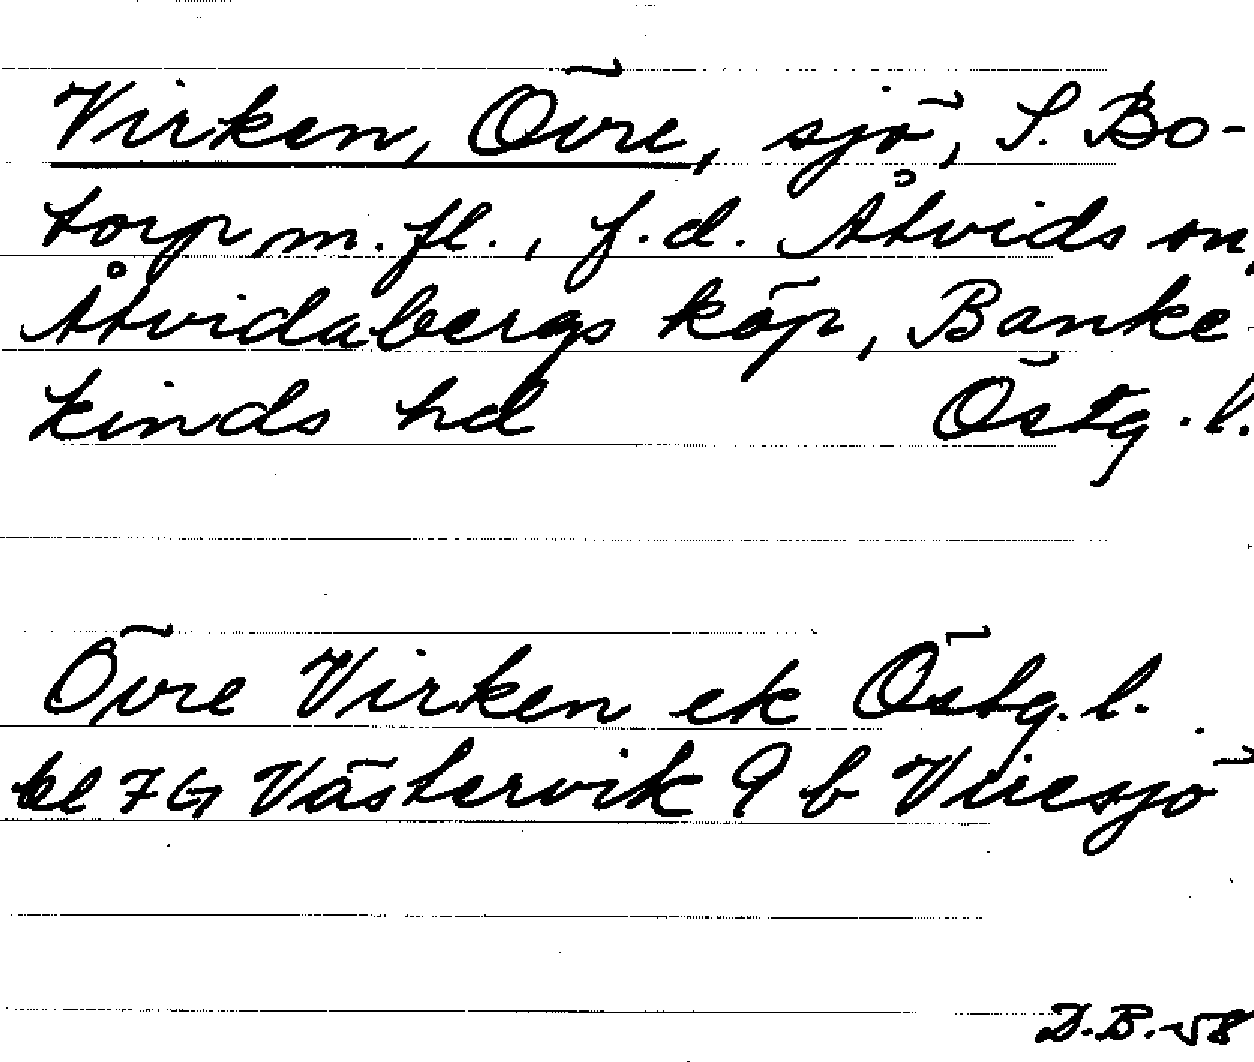 Virken, Övre, sjö, S. Bo-
torp m. fl., f. d. Åtvids sn,
Åtvidabergs köp, Banke
kinds hd Östg. l.
Övre Virken ek Östg. l.
bl 7G Västervik 9 b Viresjö
D.B.-58